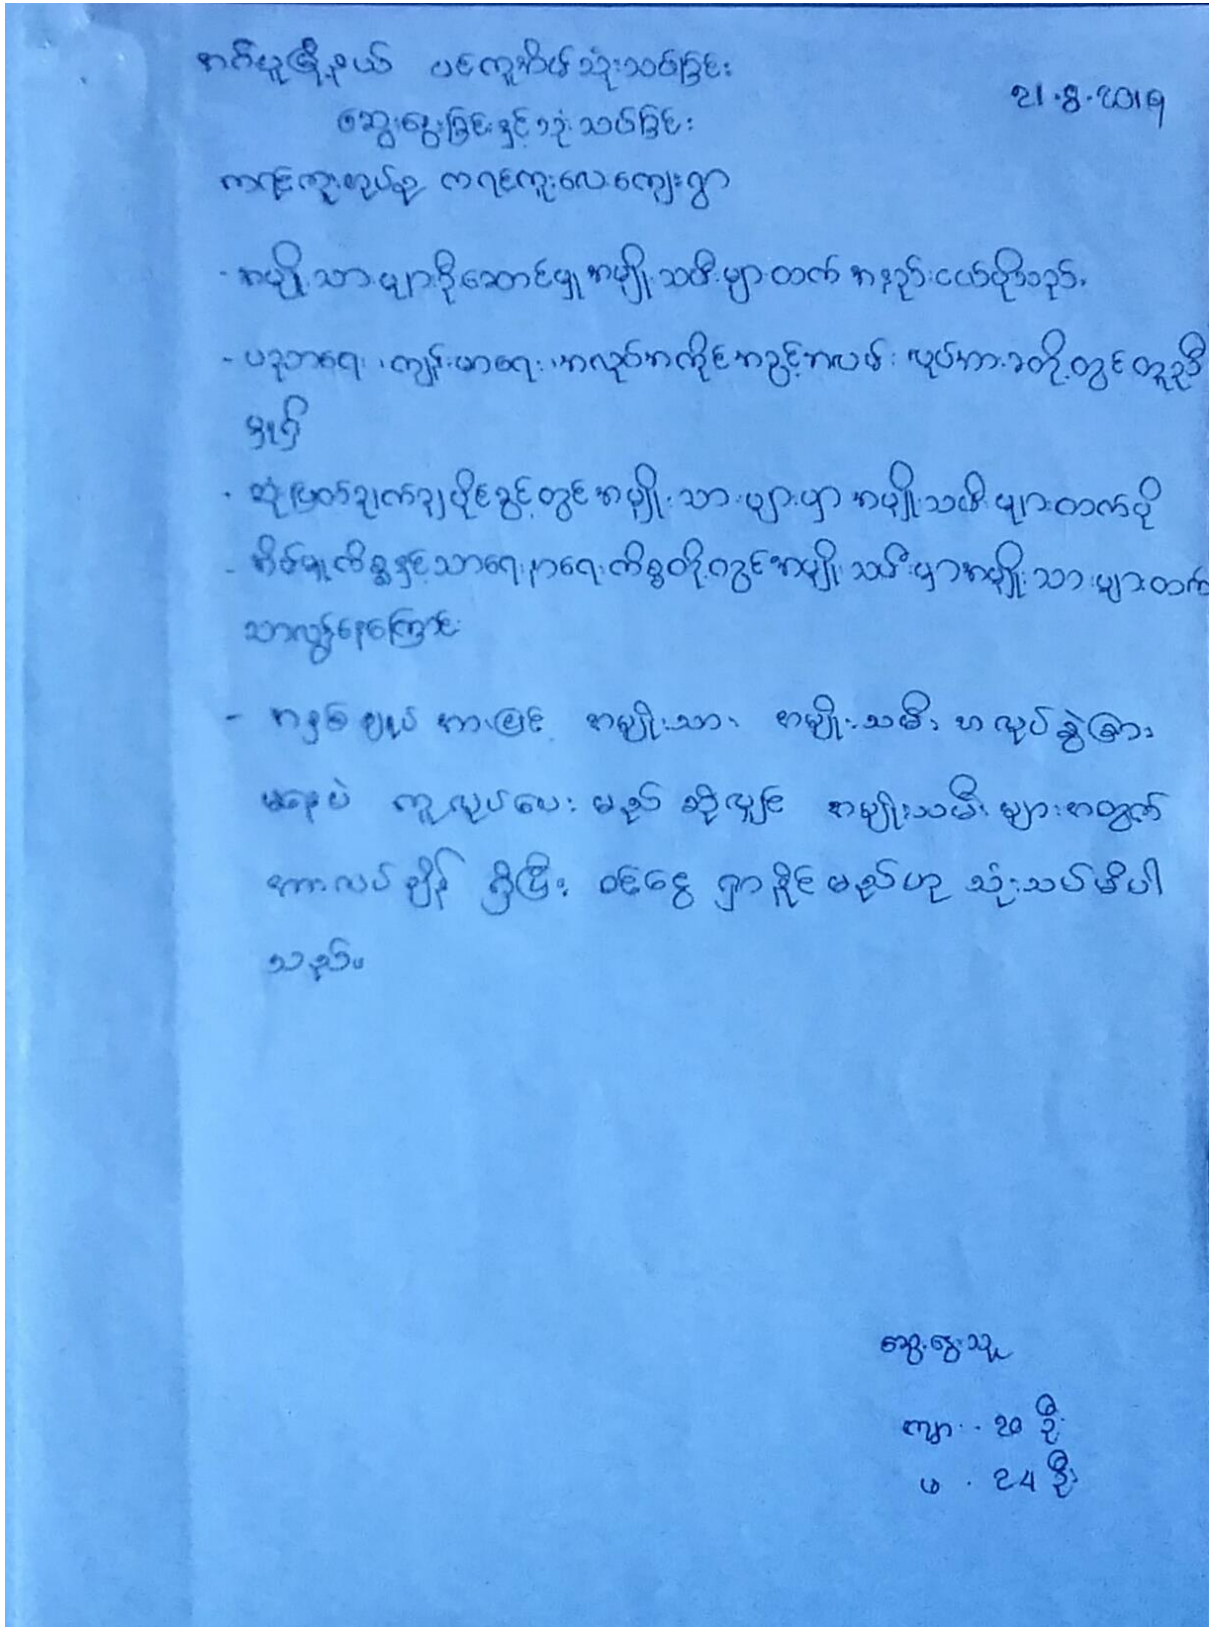 အင်္ဂပူမြို့နယ် ပင်ကူအိမ်သုံးသပ်ခြင်း
21.8.2019
ဆွေးနွေးခြင်းနှင့်သုံးသပ်ခြင်း
ကရင်ကူးအုပ်စု ကရင်ကူးလေးကျေးရွာ
- အမျိုးသားများဦးဆောင်မှုအမျိုးသမီးများထက် အနည်းငယ်ပိုသည်.
- ပညာရေး၊ ကျန်းမာရေး၊ အလုပ်အကိုင်အခွင့်အလမ်း လုပ်အားခတို့တွင် တူညီ
မှုရှိ
- ဆုံးဖြတ်ချက်ချပိုင်ခွင့်တွင်အမျိုးသားများမှာ အမျိုးသမီးများထက်ပို
- အိမ်မှုကိစ္စနှင့်သာရေးနာရေးကိစ္စတို့တွင်အမျိုးသမီးမှာအမျိုးသားများထက်
သာလွန်နေကြောင်း
- အနှစ်ချုပ်အားဖြင့် အမျိုးသား အမျိုးသမီး ဟုလုပ်ခွဲခြား
မနေပဲ ကူလုပ်ပေးမည်ဆိုလျှင် အမျိုးသမီးများအတွက်
အားလပ်ချိန်ရှိပြီး ဝင်ငွေရှာနိုင်မည်ဟု သုံးသပ်မိပါ
သည်။
ဆွေးနွေးသူ
ကျား - ၁၀ ဦး
မ - 24 ဦး